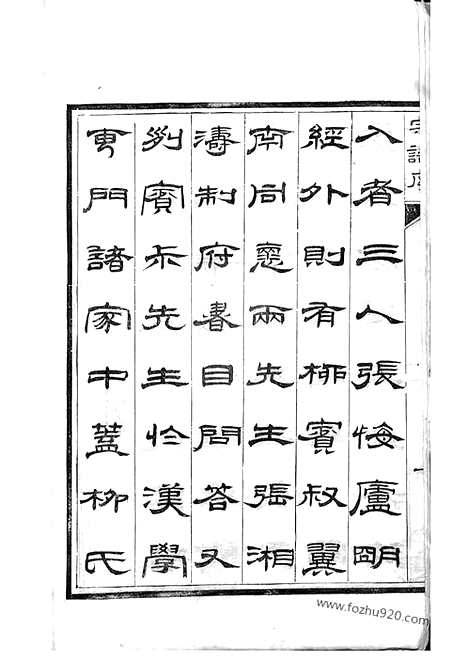 宗譜序
入者三人張悔廬朙
經外則有柳賓叔翼
南同悳兩先生張湘
濤制府書目問答又
列賓尗先生於漢學
專門諸家中蓋柳氏
一
www.fozhu920.com